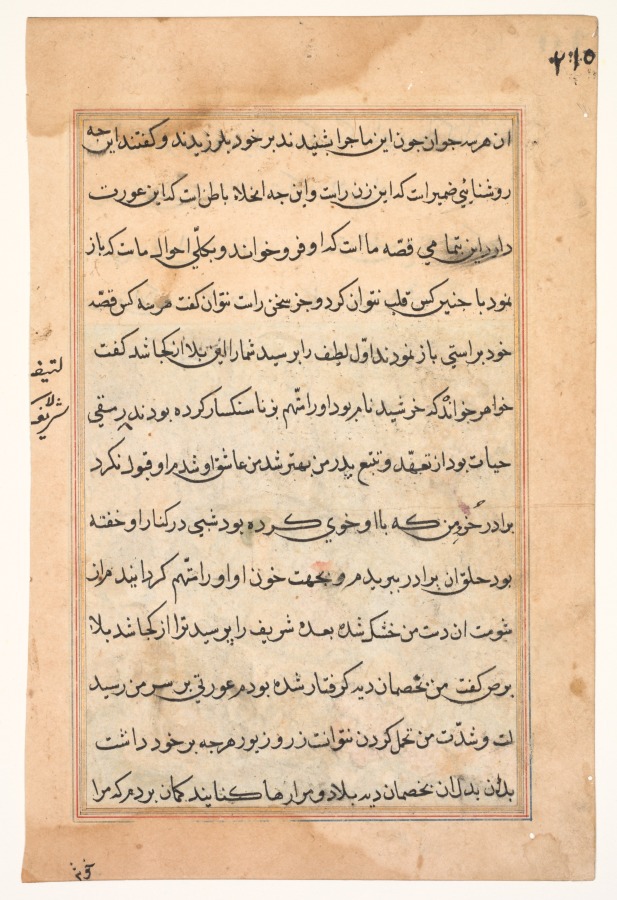 ۲۱۵
ان هر سه جوان جون این ماجرا بشنیدند بر خود بلرزیدند و کفتند این جه
روشنائی ضمیر است که این زن راست و این جه انجلاء باطن است که این عورت
دارد این بتمامی قصه ما است که او فرو خواند و بکلی احوال ما ست که باز
نمود با جنین کس قلب نتوان کرد و جز سخن راست نتوان کفت هر سه کس قصه
خود براستی باز نمودند اول لطیف را برسید شما را این بلا از کجا شد کفت
خواهر خوانده که خرشید نام بود او را متهم بزنا سنکسار کرده بودند رمقی
حیات بود از تعهد و تتبع بدر من بهتر شد من عاشق او شدم او قبول نکرد
برادر خورد من که با او خوی کرده بود شبی در کنار او خفته
بود حلق ان برادر ببریدم و بجهت خون او او را متهم کردانیدم از
شومت ان دست من خشک شده بعده شریف را برسید ترا از کجا شد بلا
برص کفت من بخصمان دیه کرفتار شده بودم عورتی بر سر من رسید
لت و شدت من تحمل کردن نتوانست زر و زیور هرجه بر خود داشت
بدان بدل ان بخصمان دیه بداد و مرا رها کنانید کمان بردم که مرا
لتیف
شریف که